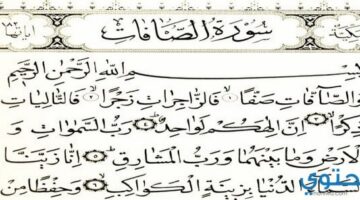 سُورَةُ الصَّافَّاتِ
بِسْمِ اللَّهِ الرَّحْمَٰنِ الرَّحِيمِ
الصَّافَّاتِ صَفًّا ۝ فَالزَّاجِرَاتِ زَجْرًا ۝ فَالتَّالِيَاتِ
ذِكْرًا ۝ إِنَّ إِلَٰهَكُمْ لَوَاحِدٌ ۝ رَبُّ السَّمَٰوَاتِ وَ
الْأَرْضِ وَمَا بَيْنَهُمَا وَرَبُّ الْمَشَارِقِ ۝ إِنَّا زَيَّنَّا
الدُّنْيَا بِزِينَةٍ الْكَوَاكِبِ ۝ وَحِفْظًا مِنْ
محتوى